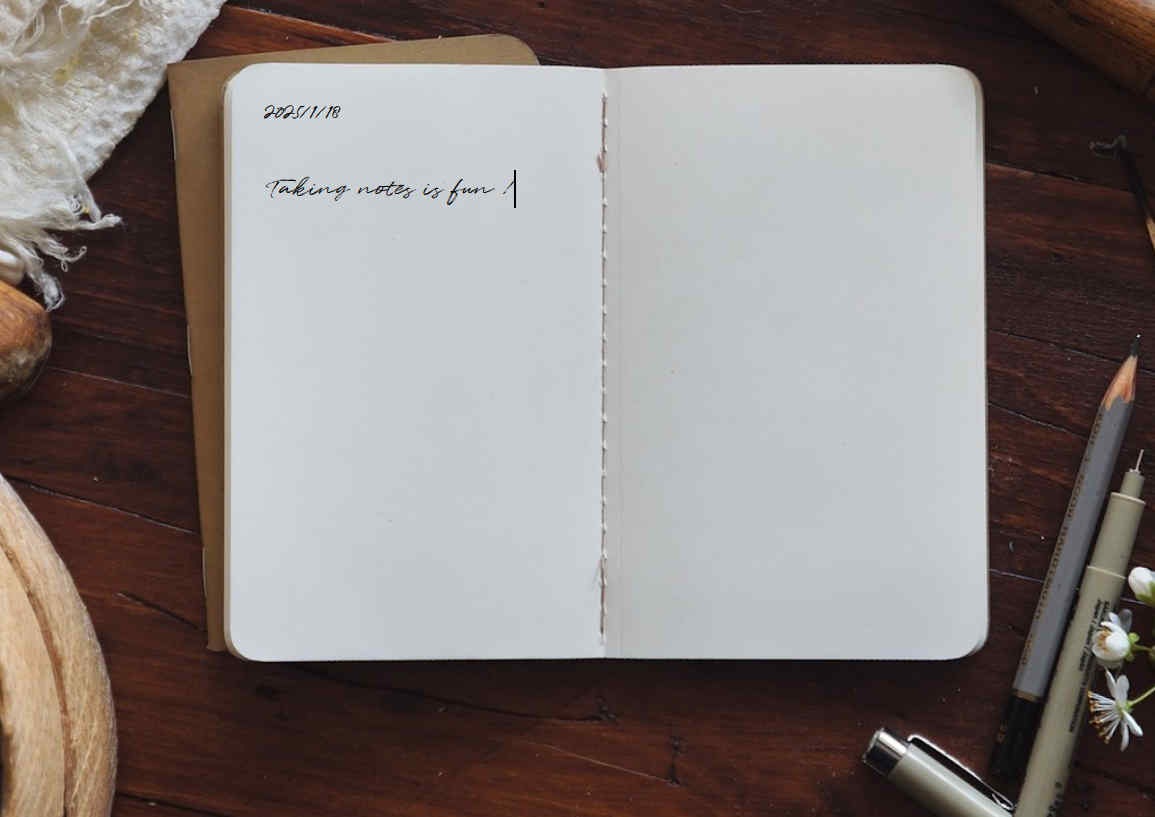 2025/1/18
Taking notes is fun !